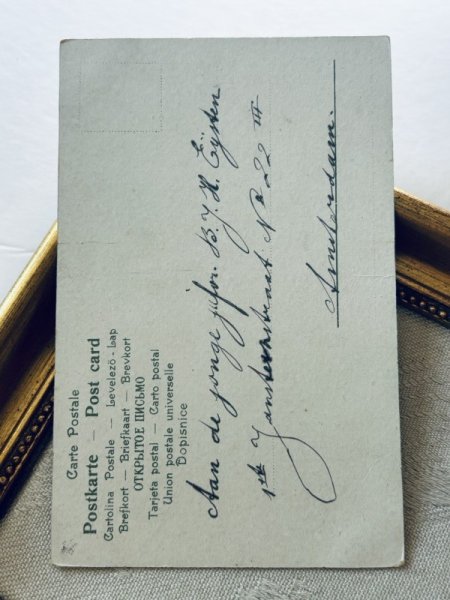 Carte Postale
Postkarte — Post card
Cartolina Postale — Levelező-Lap
Brefkort — Briefkaart — Brevkort
ОТКРЫТОЕ ПИСЬМО
Tarjeta postal — Carto postal
Union postale universelle
Dopisnice
Aan de jonge jufvr. B. J. H. Eÿsten
1ste Jansteenstraat No 22 III
Amsterdam.